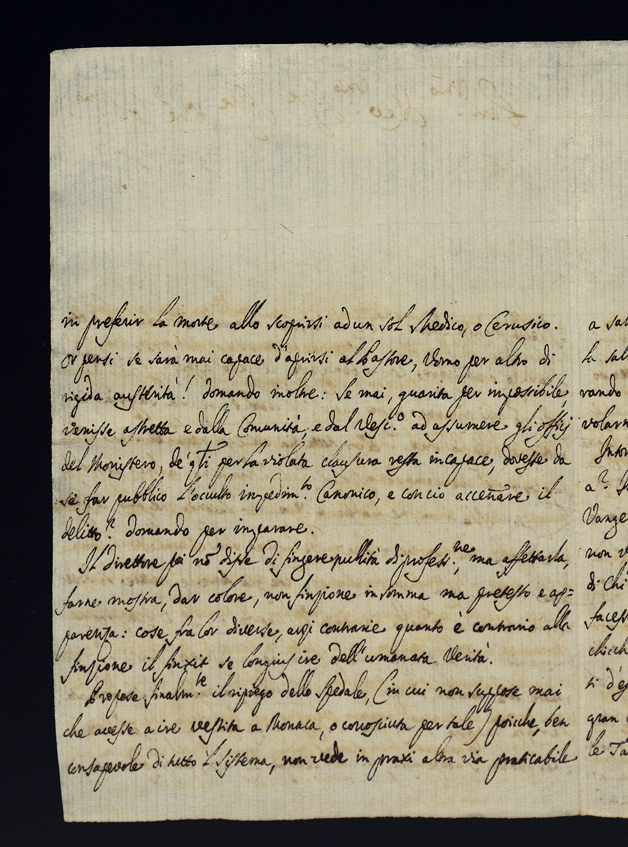 in preferir la morte allo scoprirsi ad un sol Medico, o Cerusico.
or pensi se sarà mai capace d'aprirsi al Pastore, Uomo per altro di
rigida austerità! domando inoltre: se mai, guarita per impossibile
venisse astretta e dalla Comunità, e dal Vesc.º ad assumere gli offizj
del Monistero, de' q.ti per la violata clausura resta incapace, dovesse da
se far pubblico l'occulto impedim.to Canonico, e con ciò accennare il
delitto? domando per imparare.
Il direttore poi nō disse di fingere nullità di profess.ne, ma affettarla,
farne mostra, dar colore, non finzione in somma ma pretesto e ap=
parenza: cose fra lor diverse, anzi contrarie quanto è contrario alla
finzione il finxit se longius ire dell'umanata Verità.
Propose finalm.te il ripiego dello spedale, (in cui non suppose mai
che avesse a ire vestita a Monaca, o conosciuta per tale) poicche, ben
consapevole di tutto l sistema, non vede in praxi altra via praticabile
a sal
la sal
rando
volarn
a?
Vange
non v
di chi
facess
chicch
ti d'es
gran
le